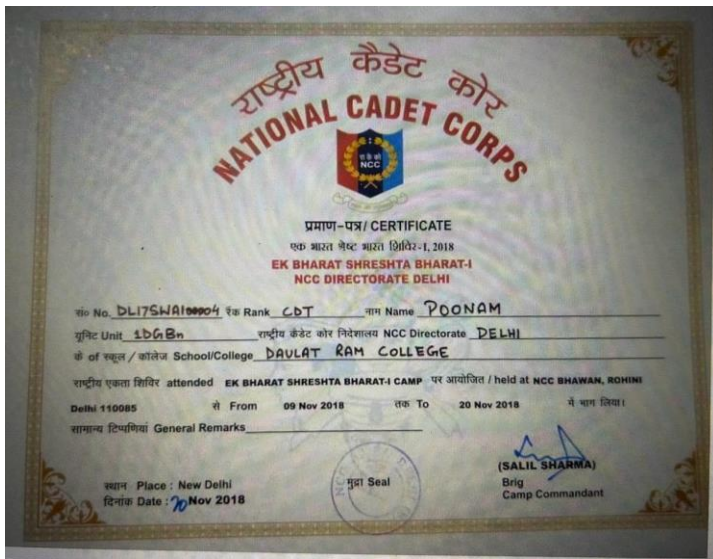 राष्ट्रीय कैडेट कोर
NATIONAL CADET CORPS
रा कै को
NCC
प्रमाण-पत्र/ CERTIFICATE
एक भारत श्रेष्ट भारत शिविर-I, 2018
EK BHARAT SHRESHTA BHARAT-I
NCC DIRECTORATE DELHI
सं० No. DL17SWA1 रैंक Rank CDT नाम Name POONAM
यूनिट Unit 1DGBn राष्ट्रीय कैडेट कोर निदेशालय NCC Directorate DELHI
के of स्कूल / कॉलेज School/College DAULAT RAM COLLEGE
राष्ट्रीय एकता शिविर attended EK BHARAT SHRESHTA BHARAT-I CAMP पर आयोजित / held at NCC BHAWAN, ROHINI
Delhi 110085 से From 09 Nov 2018 तक To 20 Nov 2018 में भाग लिया।
सामान्य टिप्पणियां General Remarks
(SALIL SHARMA)
स्थान Place : New Delhi मुद्रा Seal Brig
दिनांक Date : 20 Nov 2018 Camp Commandant